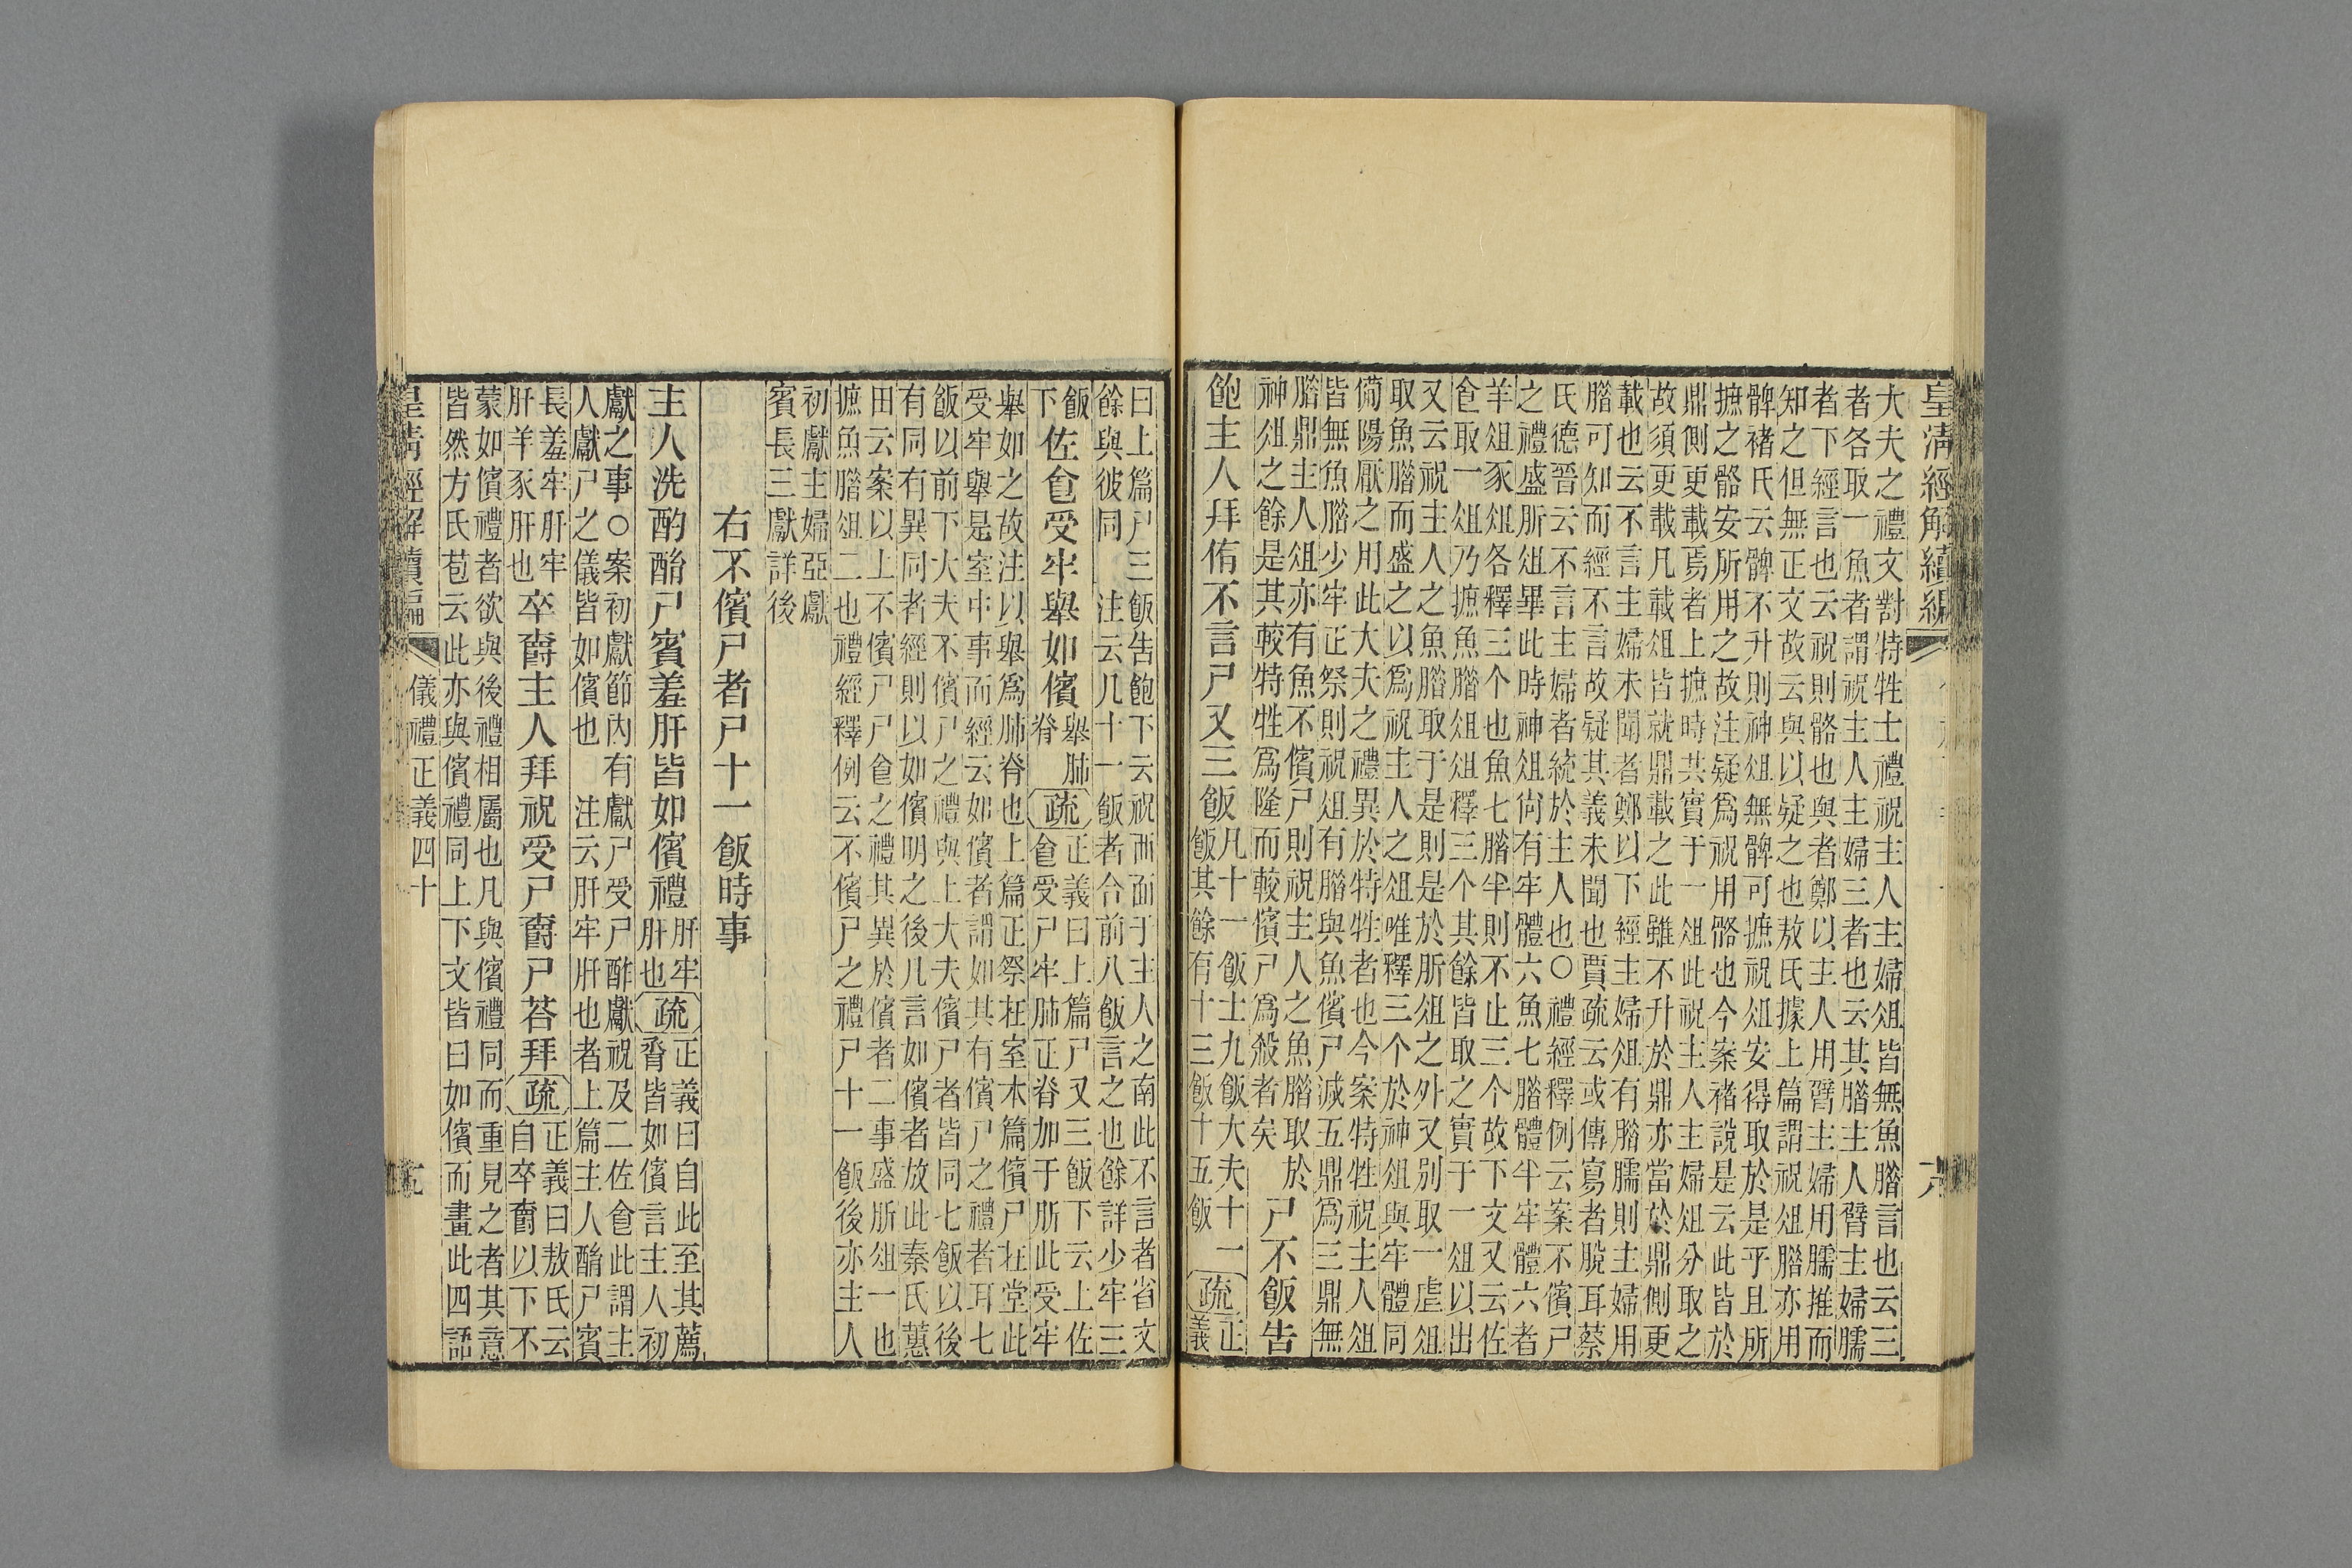 皇清經解續編
大夫之禮文對特牲士禮祝主人主婦俎皆無魚腊言也云三
者各取一魚者謂祝主人主婦三者也云其腊主人臂主婦臑
者下經言也云祝則骼也與者鄭以主人用臂主婦用臑推而
知之但無正文故云與以疑之也敖氏據上篇謂祝俎腊亦用
髀褚氏云髀不升則神俎無髀可摭祝俎安得取於是乎且所
摭之骼安所用之故注疑爲祝用骼也今案褚說是云此皆於
鼎側更載焉者上摭時共實于一俎此祝主人主婦俎分取之
故須更載凡載俎皆就鼎載之此雖不升於鼎亦當於鼎側更
載也云不言主婦未聞者鄭以下經主婦俎有腊臑則主婦用
腊可知而經不言故疑其義未聞也賈疏云或傳寫者脫耳蔡
氏德晉云不言主婦者統於主人也○禮經釋例云案不儐尸
之禮盛肵俎畢此時神俎尙有牢體六魚七腊體半牢體六者
羊俎豕俎各釋三个也魚七腊半則不止三个故下文又云佐
食取一俎乃摭魚腊俎俎釋三个其餘皆取之實于一俎以出
又云祝主人之魚腊取于是則是於肵俎之外又別取一虛俎
取魚腊而盛之以爲祝主人之俎唯釋三个於神俎與牢體同
備陽厭之用此大夫之禮異於特牲者也今案特牲祝主人俎
皆無魚腊少牢正祭則祝俎有腊與魚儐尸減五鼎爲三鼎無
腊鼎主人俎亦有魚不儐尸則祝主人之魚腊取於
神俎之餘是其較特牲爲隆而較儐尸爲殺者矣
尸不飯告
飽主人拜侑不言尸又三飯
凡十一飯士九飯大夫十一
飯其餘有十三飯十五飯
疏
正
義
曰上篇尸三飯告飽下云祝西面于主人之南此不言者省文
餘與彼同 注云凡十一飯者合前八飯言之也餘詳少牢三
飯
下佐食受牢舉如儐
舉肺
脊
疏
正義曰上篇尸又三飯下云上佐
食受尸牢肺正脊加于肵此受牢
舉如之故注以舉爲肺脊也上篇正祭在室本篇儐尸在堂此
受牢舉是室中事而經云如儐者謂如其有儐尸之禮者耳七
飯以前下大夫不儐尸之禮與上大夫儐尸者皆同七飯以後
有同有異同者經則以如儐明之後凡言如儐者放此秦氏蕙
田云案以上不儐尸尸食之禮其異於儐者二事盛肵俎一也
摭魚腊俎二也禮經釋例云不儐尸之禮尸十一飯後亦主人
初獻主婦亞獻
賓長三獻詳後
右不儐尸者尸十一飯時事
主人洗酌酳尸賓羞肝皆如儐禮
肝牢
肝也
疏
正義曰自此至其薦
脀皆如儐言主人初
獻之事○案初獻節內有獻尸受尸酢獻祝及二佐食此謂主
人獻尸之儀皆如儐也 注云肝牢肝也者上篇主人酳尸賓
長羞牢肝牢
肝羊豕肝也
卒爵主人拜祝受尸爵尸荅拜
疏
正義曰敖氏云
自卒爵以下不
蒙如儐禮者欲與後禮相屬也凡與儐禮同而重見之者其意
皆然方氏苞云此亦與儐禮同上下文皆曰如儐而畫此四語
皇清經解續編
儀禮正義四十